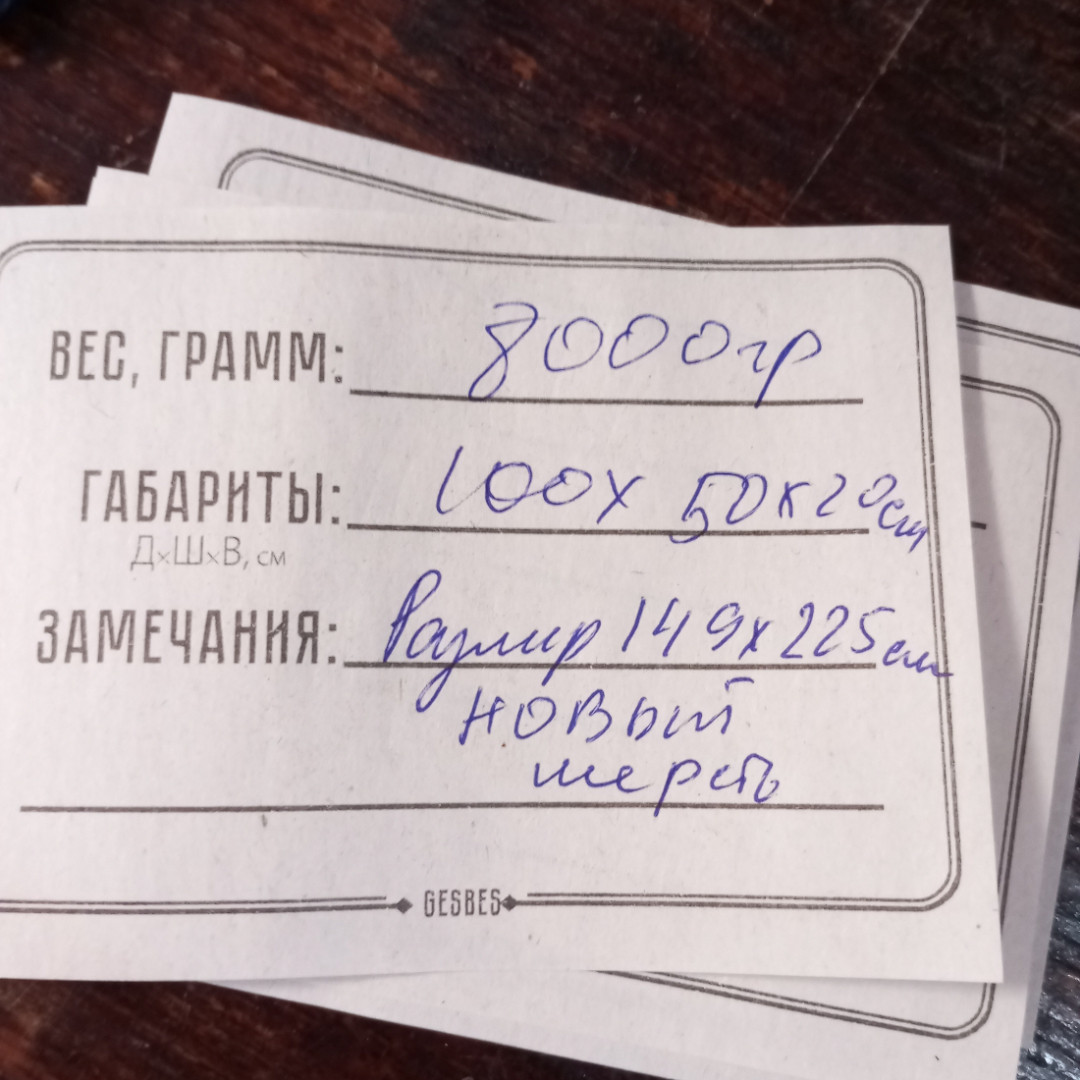 ВЕС, ГРАММ: 8000гр
ГАБАРИТЫ: 100х 50х20см
ДхШхВ, см
ЗАМЕЧАНИЯ: Размир 149х225см
новый
шерсть
GESBES